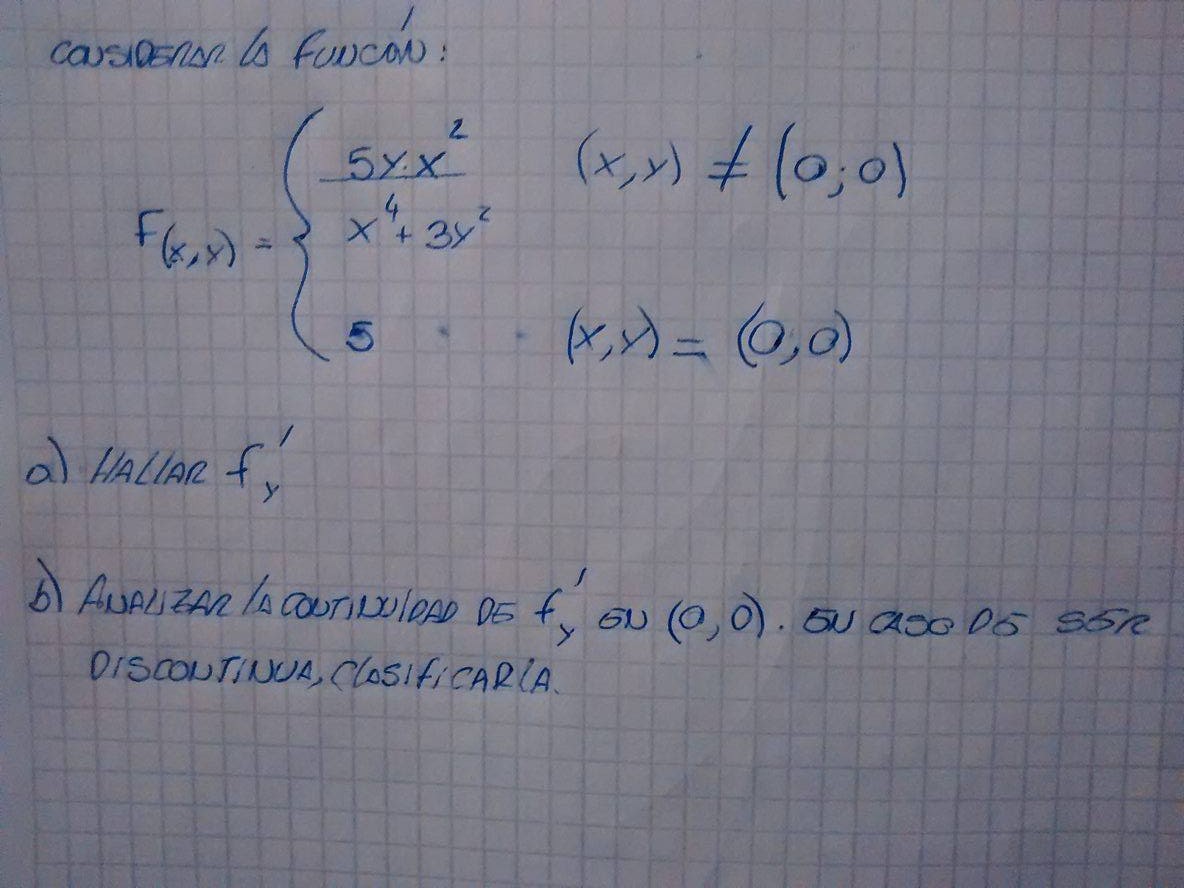 CONSIDERAR la funcón:
5y.x²
(x,y) ≠ (0;0)
F(x,y) =
x⁴+ 3y²
5 (x,y) = (0,0)
a) HALLAR f'y
b) ANALIZAR la CONTINUIDAD DE f'y EN (0,0). EN CASO DE SER
DISCONTINUA, ClASIfICARLA.